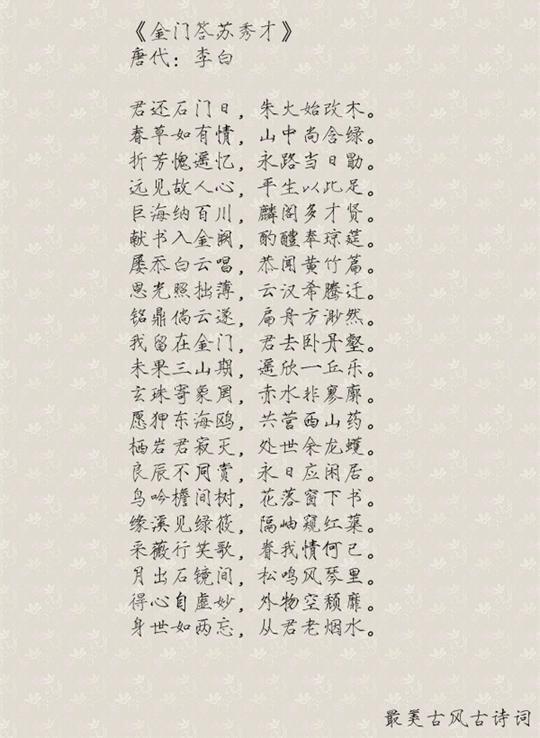 《金门答苏秀才》
唐代：李白
君还石门日，朱火始改木。
春草如有情，山中尚含绿。
折芳愧遥忆，永路当日勖。
远见故人心，平生以此足。
巨海纳百川，麟阁多才贤。
献书入金阙，酌醴奉琼筵。
屡忝白云唱，恭闻黄竹篇。
恩光照拙薄，云汉希腾迁。
铭鼎倘云遂，扁舟方渺然。
我留在金门，君去卧丹壑。
未果三山期，遥欣一丘乐。
玄珠寄象罔，赤水非寥廓。
愿狎东海鸥，共营西山药。
栖岩君寂灭，处世余龙蠖。
良辰不同赏，永日应闲居。
鸟吟檐间树，花落窗下书。
缘溪见绿筱，隔岫窥红蕖。
采薇行笑歌，眷我情何已。
月出石镜间，松鸣风琴里。
得心自虚妙，外物空颓靡。
身世如两忘，从君老烟水。
最美古风古诗词